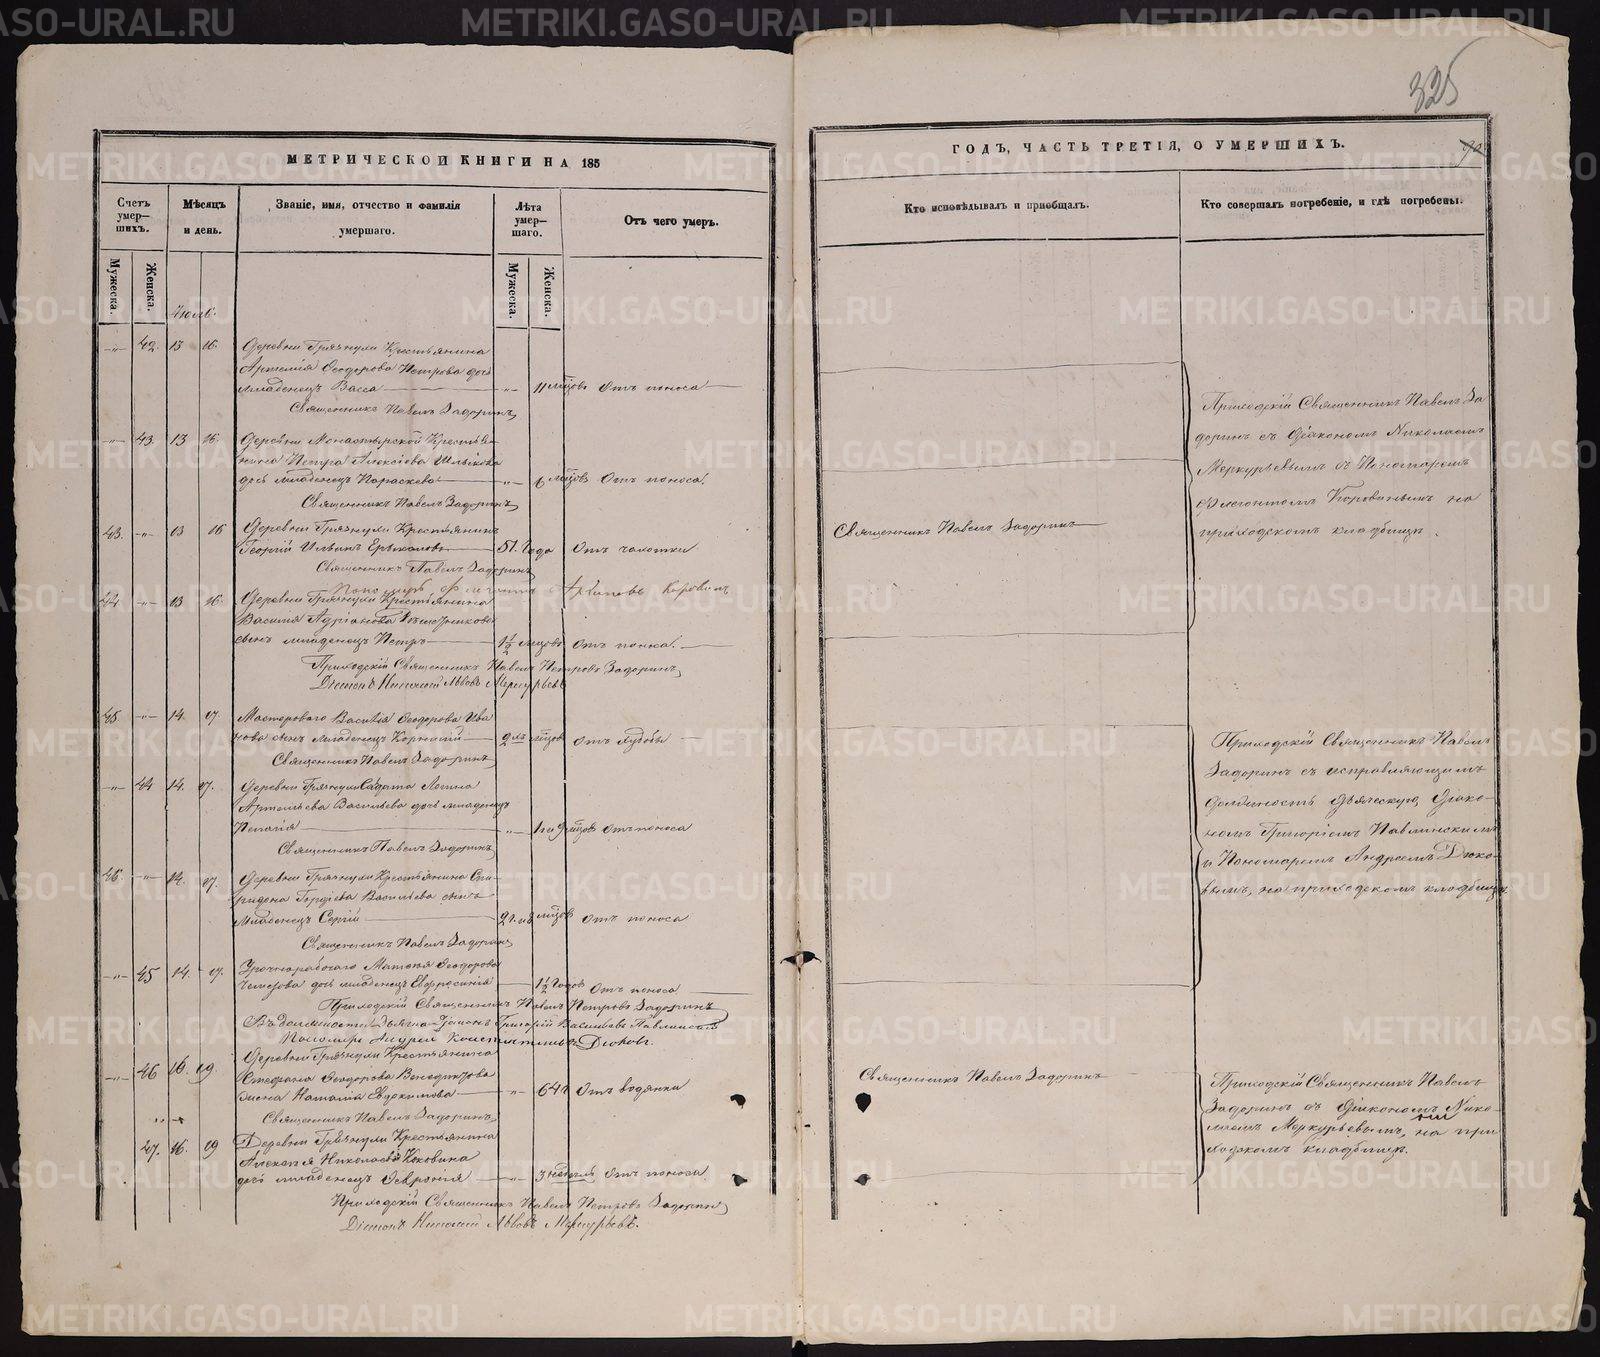 325
МЕТРИЧЕСКОЙ КНИГИ НА 185
ГОДЪ, ЧАСТЬ ТРЕТІЯ, О УМЕРШИХЪ.
Счетъ умер—шихъ.
Мѣсяцъ и день.
Званіе, имя, отчество и фамилія умершаго.
Лѣта умер—шаго.
Отъ чего умеръ.
Мужеска.
Женска.
Мужеска.
Женска.
Кто исповѣдывалъ и пріобщалъ.
Кто совершалъ погребеніе, и гдѣ погребены.
Іюль.
—"— 42. 13 16. Деревни Грязнухи Крестьянина
Артемія Ѳеодорова Петрова дочь
младенецъ Васса —"— 11 мѣсцовъ Отъ поноса
Священникъ Павелъ Задоринъ
—"— 43. 13 16. Деревни Монастырской Крестья-
нина Петра Алексіева
дочь младенецъ Параскева —"— 6 мѣсцовъ Отъ поноса.
Священникъ Павелъ Задоринъ
43. —"— 13 16 Деревни Грязнухи Крестьянинъ
Георгій Ильинъ 51. Года Отъ чахотки
Священникъ Павелъ Задоринъ
Священникъ Павелъ Задоринъ
44. —"— 13 16. Деревни Грязнухи Крестьянина
Василія Адріанова
сынъ младенецъ Петръ 1½ мѣсцовъ Отъ поноса.
Приходскій Священникъ Павелъ Петровъ Задоринъ
Діаконъ Николай Львовъ Меркурьевъ
Приходскій Священникъ Павелъ За
доринъ съ Діакономъ Николаемъ
Меркурьевымъ и Пономаремъ
Флегонтомъ Коровинымъ на
приходскомъ кладбищѣ.
45. —"— 14. 17. Мастероваго Василія Ѳеодорова Ива
нова сынъ младенецъ Корнилій
Священникъ Павелъ Задоринъ
—"— 44 14. 17. Деревни Грязнухи Солдата Логина
Артемьева Васильева дочь младенецъ
Пелагія —"— 1 го 9 мѣсцовъ Отъ поноса
Священникъ Павелъ Задоринъ
46. —"— 14. 17. Деревни Грязнухи Крестьянина Спи
ридона Гордіева Васильева сынъ
Младенецъ Сергій Отъ поноса
Священникъ Павелъ Задоринъ
—"— 45 14. 17. Урочнорабочаго Матвея Ѳеодорова
дочь младенецъ Евфросинія 1½ Годовъ Отъ поноса
Приходскій Священникъ Павелъ Петровъ Задоринъ
Въ должности дьячка Діаконъ Григорій Васильевъ Павлинскій
Пономарь Андрей Константиновъ Дюковъ.
Приходскій Священникъ Павелъ
Задоринъ съ исправляющимъ
Должность дьяческую Діако-
номъ Григоріемъ Павлинскимъ
и Пономаремъ Андреемъ Дюко-
вымъ, на приходскомъ кладбищѣ.
—"— 46 16. 19. Деревни Грязнухи Крестьянина
Стефана Ѳеодорова Венедиктова
жена Наталія Евдокимова —"— 64 г Отъ водянки
Священникъ Павелъ Задоринъ
Священникъ Павелъ Задоринъ
47. 16. 19 Деревни Грязнухи Крестьянина
Алексѣя Николаева Коковина
дочь младенецъ Ѳеврония —"— 3 недѣль Отъ поноса.
Приходскій Священникъ Павелъ Петровъ Задоринъ
Діаконъ Николай Львовъ Меркурьевъ.
Приходскій Священникъ Павелъ
Задоринъ съ Діакономъ Нико-
лаемъ Меркурьевымъ, на при
ходскомъ кладбищѣ.
METRIKI.GASO-URAL.RU